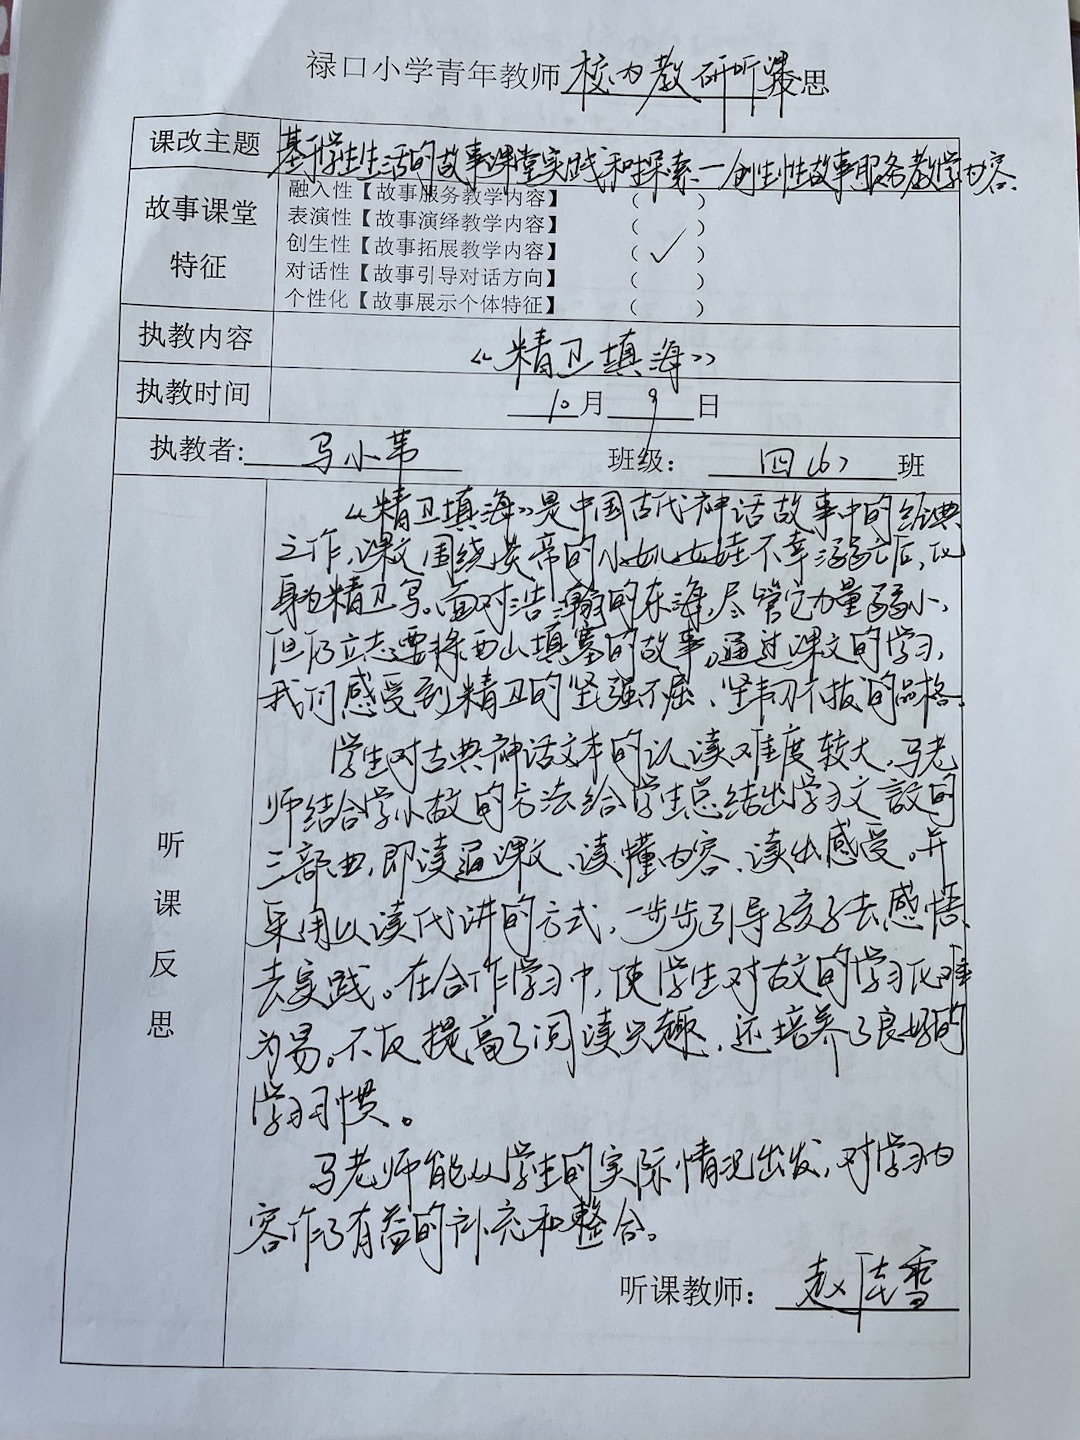 禄口小学青年教师校内教研听课反思
课改主题 基于学生生活的故事课堂实践和探索—创生性故事服务教学内容
故事课堂
特征
融入性【故事服务教学内容】 （ ）
表演性【故事演绎教学内容】 （ ）
创生性【故事拓展教学内容】 （✓）
对话性【故事引导对话方向】 （ ）
个性化【故事展示个体特征】 （ ）
执教内容 《精卫填海》
执教时间 10月9日
执教者: 马小苇 班级： 四（6）班
听课反思
《精卫填海》是中国古代神话故事中的经典
之作，课文围绕炎帝的小女儿女娃不幸溺亡后，化
身为精卫鸟。面对浩瀚的东海，尽管它力量弱小，
但仍立志要将西山填塞的故事。通过课文的学习，
我们感受到精卫的坚强不屈、坚韧不拔的品格。
学生对古典神话文本的认读难度较大，马老
师结合学小故的方法给学生总结出学习文段的
三部曲，即读通课文、读懂内容、读出感受。并
采用以读代讲的方式，一步步引导孩子去感悟
去实践。在合作学习中，使学生对故文的学习化难
为易。不仅提高了阅读兴趣，还培养了良好的
学习习惯。
马老师能从学生的实际情况出发，对学习内
容作了有益的补充和整合。
听课教师： 赵雪